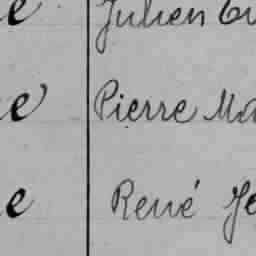 e Julien
e Pierre Ma
e René Je